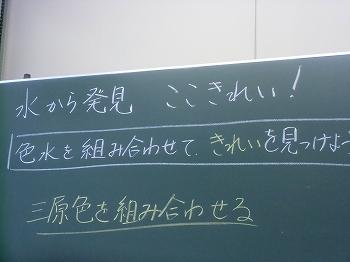 水から発見 ここきれい!
色水を組み合わせて、きれいを見つけよう
三原色を組み合わせる